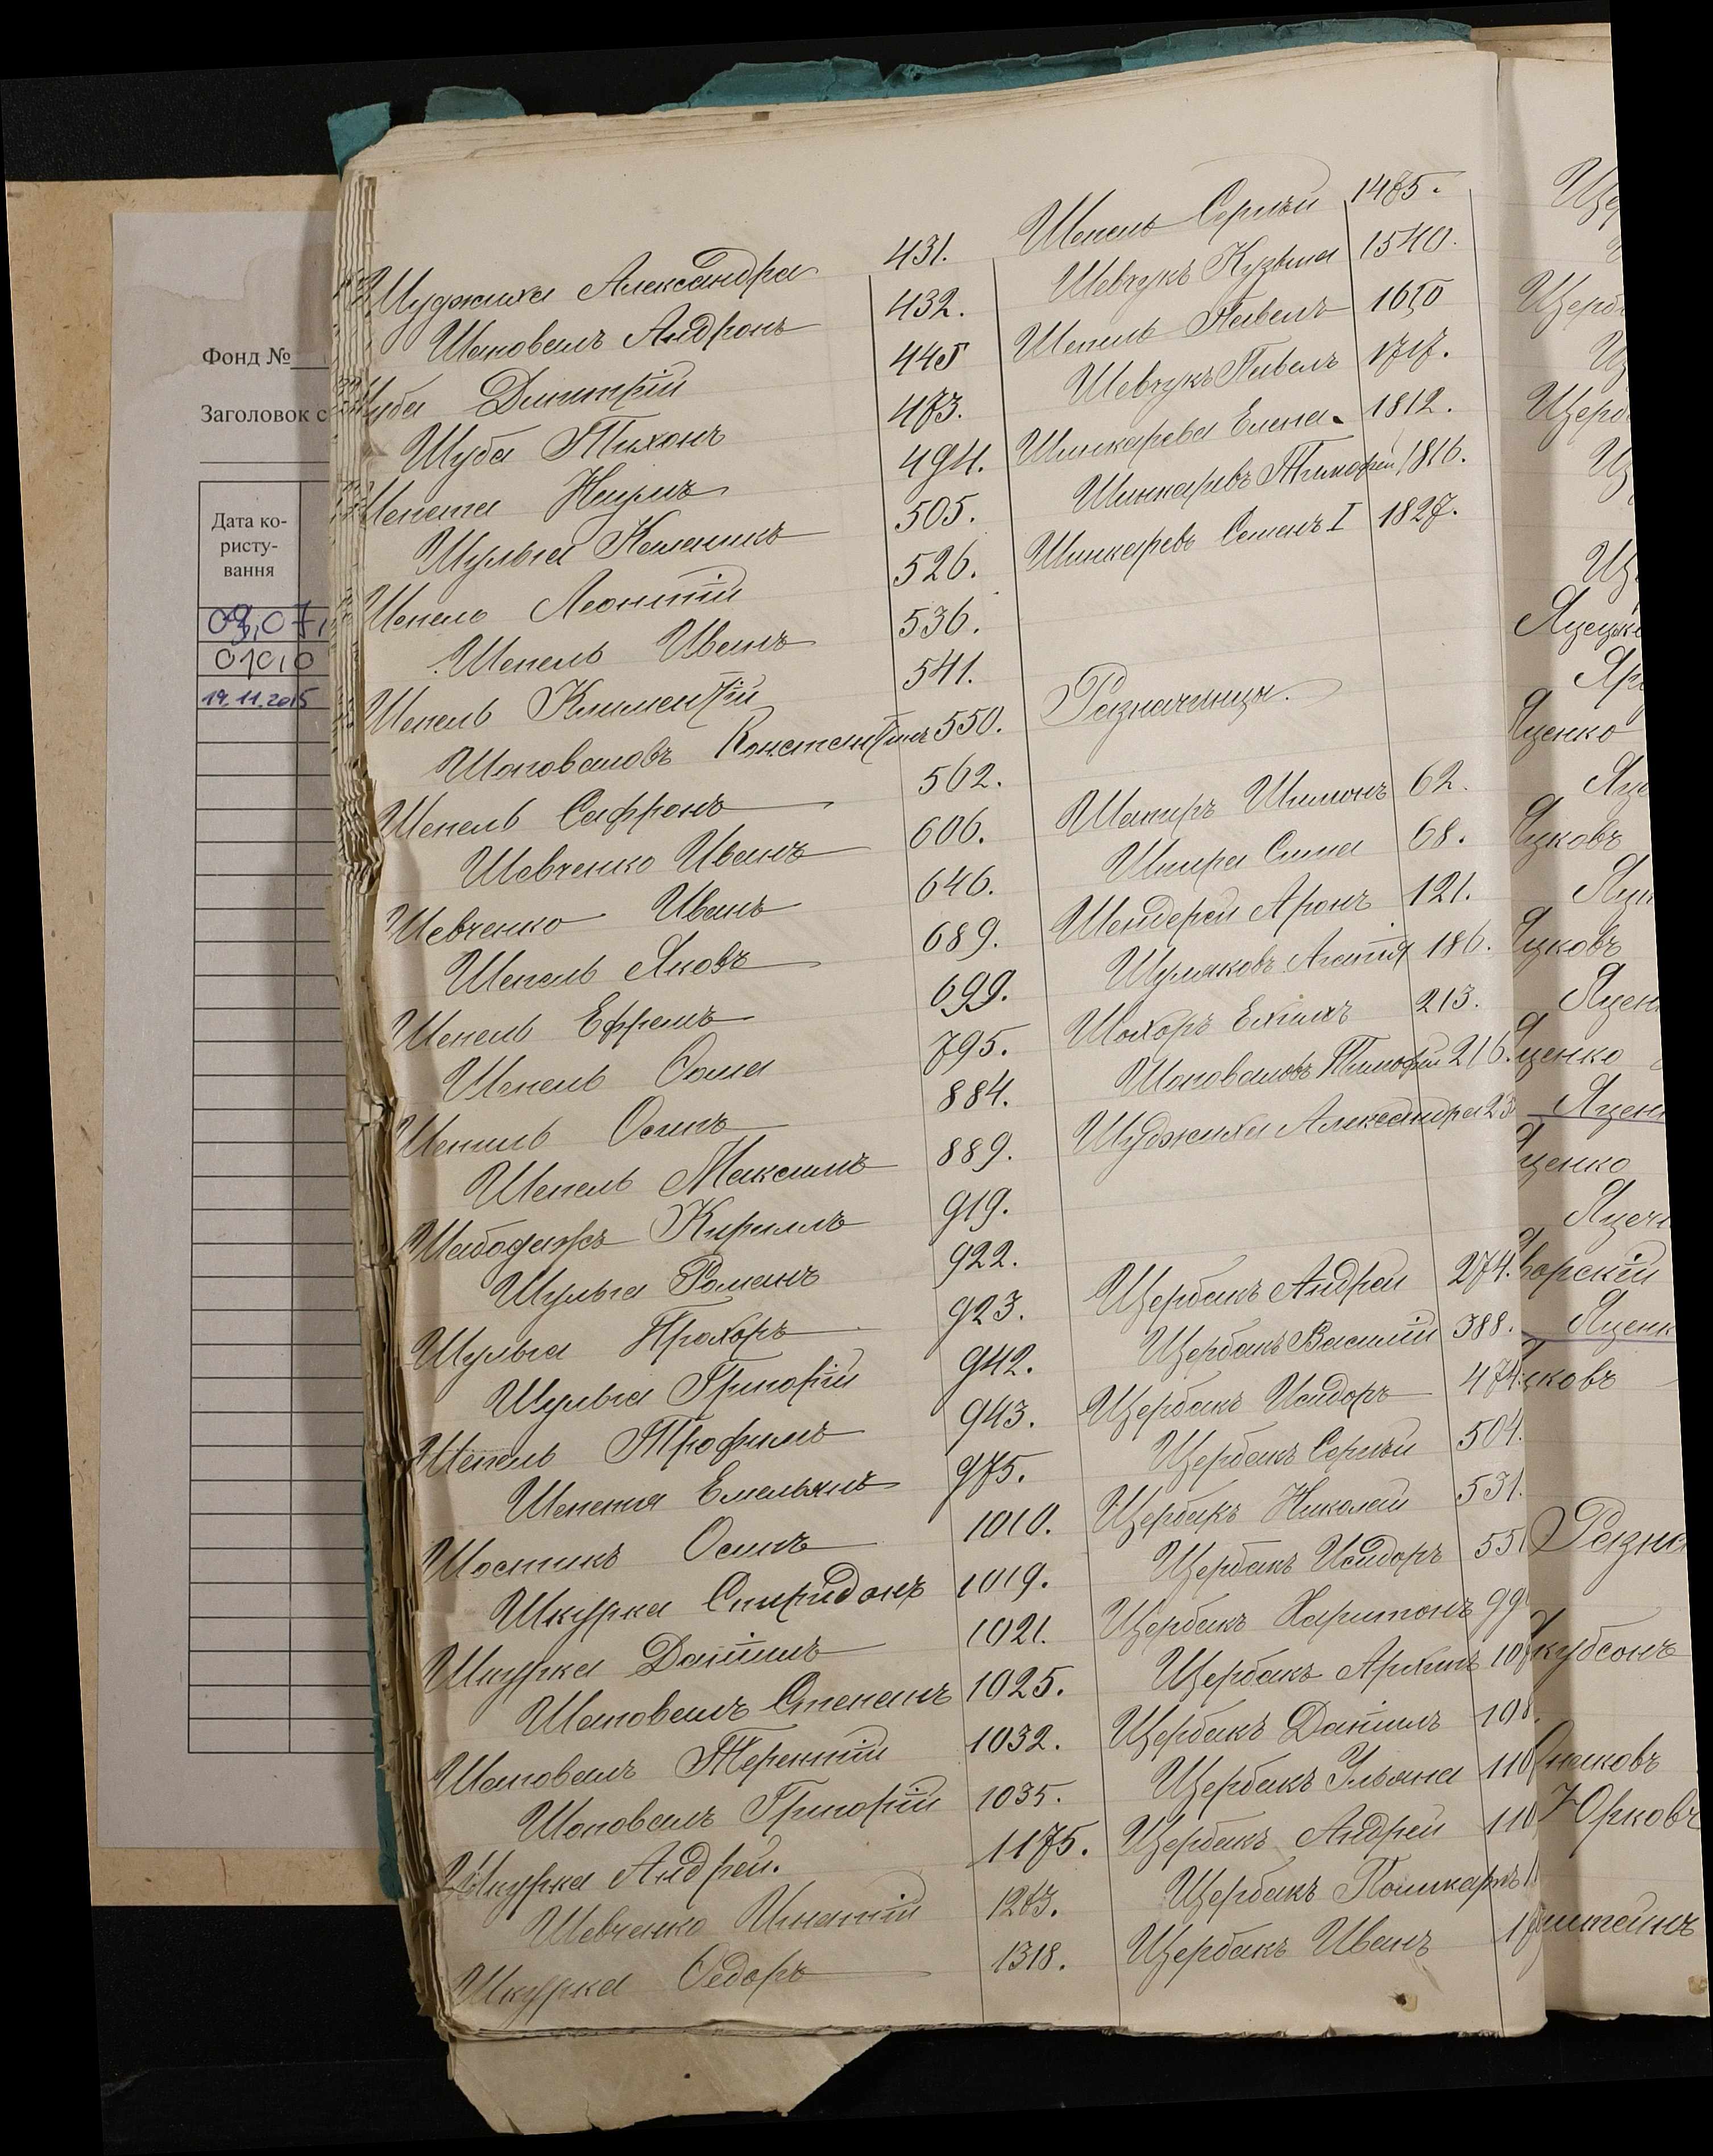 Фонд №
Заголовок с
Дата ко-
ристу-
вання
09,07,
01010
19.11.2015
Шуджиха Александра 431.
Шаповалъ Андронъ 432.
Шуба Димитрій 445
Шуба Тихонъ 473.
Шепета Наумъ 494.
Шульга 505.
Шепель Леонтій 526.
Шепель Иванъ 536.
Шепель Климентій 541.
Шаповаловъ Константинъ 550.
Шепель Сафронъ 562.
Шевченко Иванъ 606.
Шевченко Иванъ 646.
Шепель Яковъ 689.
Шепель Ефремъ 699.
Шепель Ѳома 795.
Шепель Осипъ 884.
Шепель Максимъ 889.
Шабодажъ Кириллъ 919.
Шульга Романъ 922.
Шульга Прохоръ 923.
Шульга Григорій 942.
Шепель Трофимъ 943.
Шепета Емельянъ 975.
Шостикъ Осипъ 1010.
Шкурка Спиридонъ 1019.
Шкурка Даніилъ 1021.
Шаповалъ Степанъ 1025.
Шаповалъ Терентій 1032.
Шаповалъ Григорій 1035.
Шкурка Андрей. 1175.
Шевченко Игнатій 1283.
Шкурка Ѳедоръ 1318.
Шепель Сергѣй 1485.
Шевчукъ Кузьма 1540.
Шепель Павелъ 1650
Шевчукъ Павелъ 1717.
Шинкарева Елена. 1812.
Шинкаревъ Тимофей 1816.
Шинкаревъ Семенъ I 1827.
Разночинцы.
Шапиръ Шимонъ 62.
Шпира Сима 68.
Шендерей Аронъ 121.
Шумаковъ Агапія 186.
Шохоръ Ехіилъ 213.
Шаповаловъ Тимофей 216.
Шуджиха Александра 23
Щербакъ Андрей 274.
Щербакъ Василій 388.
Щербакъ Исидоръ 474.
Щербакъ Сергѣй 504.
Щербакъ Николай 531.
Щербакъ Исидоръ 55
Щербакъ Харитонъ 99
Щербакъ Архипъ 10
Щербакъ Даніилъ 108.
Щербакъ Ульяна 110
Щербакъ Андрей 110
Щербакъ Поликарпъ 1
Щербакъ Иванъ 1
Щер
Щерб
Щ
Щерб
Щ
Щ
Яцецко
Яр
Яценко
Яце
Яцковъ
Яцк
Яцковъ
Яцен
Яценко
Яцен
Яценко
Яцен
Яворскій
Яценк
Яцковъ
Разно
Якубсонъ
Юрковъ
штейнъ